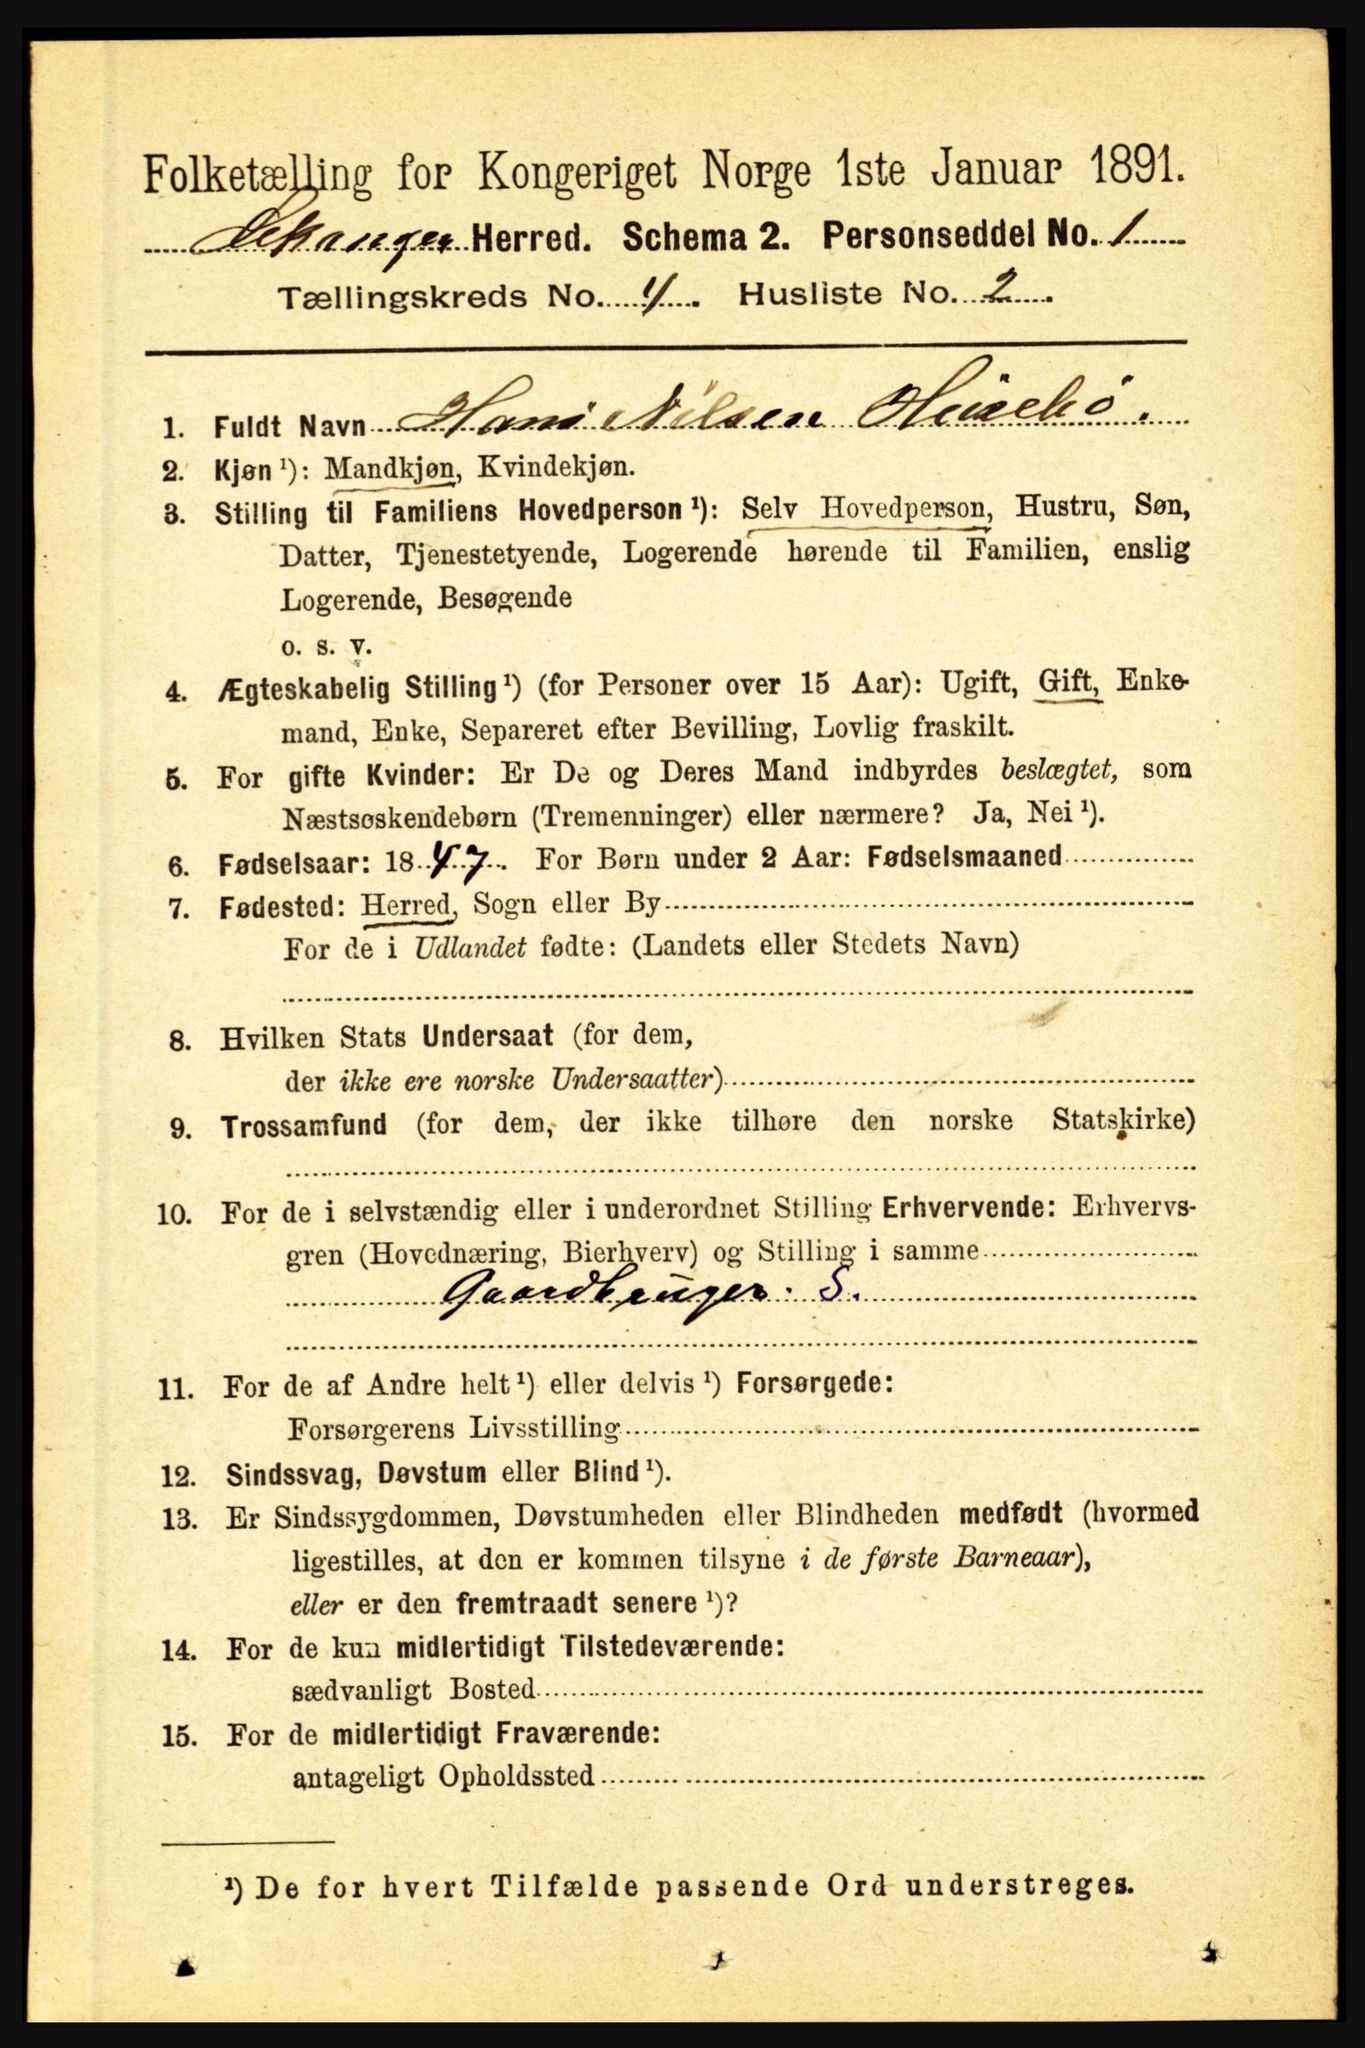 Folketælling for Kongeriget Norge 1ste Januar 1891.
Lekanger Herred. Schema 2. Personseddel No. 1
Tællingskreds No. 4. Husliste No. 2.
1. Fuldt Navn Hans Nilsen Husebö.
2. Kjøn ¹): Mandkjøn, Kvindekjøn.
3. Stilling til Familiens Hovedperson ¹): Selv Hovedperson, Hustru, Søn,
Datter, Tjenestetyende, Logerende hørende til Familien, enslig
Logerende, Besøgende
o. s. v.
4. Ægteskabelig Stilling ¹) (for Personer over 15 Aar): Ugift, Gift, Enke-
mand, Enke, Separeret efter Bevilling, Lovlig fraskilt.
5. For gifte Kvinder: Er De og Deres Mand indbyrdes beslægtet, som
Næstsøskendebørn (Tremenninger) eller nærmere? Ja, Nei ¹).
6. Fødselsaar: 1847. For Børn under 2 Aar: Fødselsmaaned
7. Fødested: Herred, Sogn eller By
For de i Udlandet fødte: (Landets eller Stedets Navn)
8. Hvilken Stats Undersaat (for dem,
der ikke ere norske Undersaatter)
9. Trossamfund (for dem, der ikke tilhøre den norske Statskirke)
10. For de i selvstændig eller i underordnet Stilling Erhvervende: Erhvervs-
gren (Hovednæring, Bierhverv) og Stilling i samme
Gaardbruger. S.
11. For de af Andre helt ¹) eller delvis ¹) Forsørgede:
Forsørgerens Livsstilling
12. Sindssvag, Døvstum eller Blind ¹).
13. Er Sindssygdommen, Døvstumheden eller Blindheden medfødt (hvormed
ligestilles, at den er kommen tilsyne i de første Barneaar),
eller er den fremtraadt senere ¹)?
14. For de kun midlertidigt Tilstedeværende:
sædvanligt Bosted
15. For de midlertidigt Fraværende:
antageligt Opholdssted
¹) De for hvert Tilfælde passende Ord understreges.